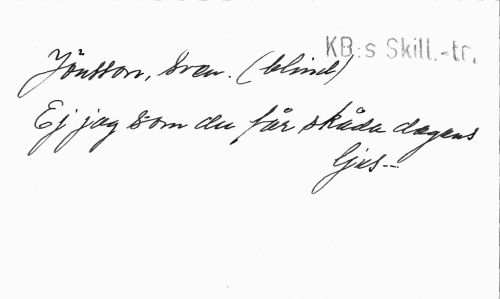 KB:s Skill.-tr.
Jönsson, Sven. (blind)
Ej jag som du får skåda dagens
ljus--